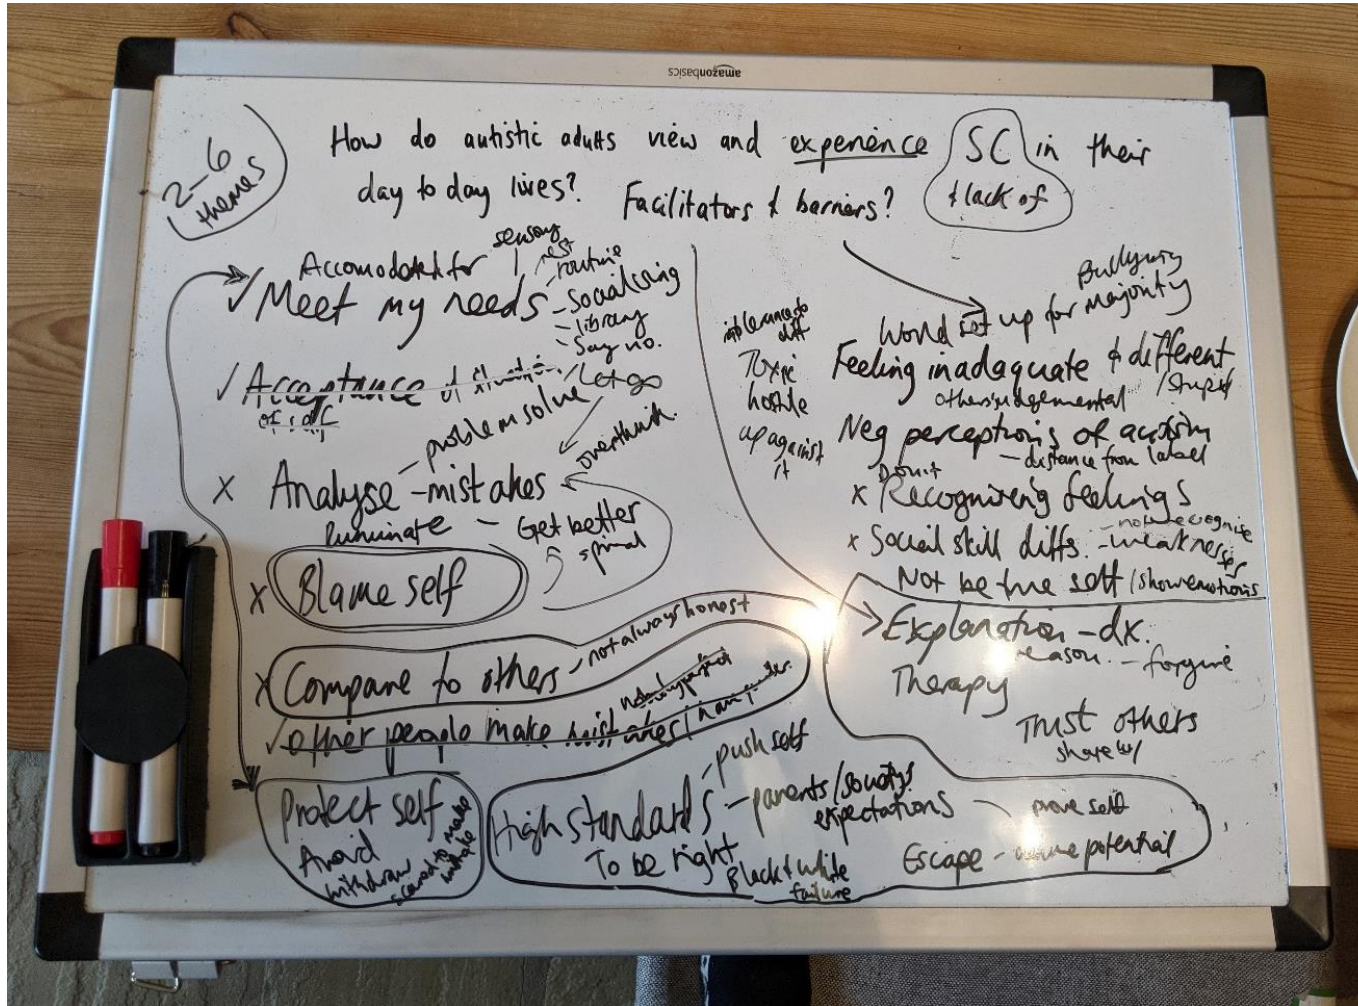 amazonbasics
2-6
themes
How do autistic adults view and experience SC in their
& lack of
day to day lives?
Facilitators & barriers?
Accomodated for
sensory
rest
routine
✓ Meet my needs
- Socialising
- library
- Say no.
✓ Acceptance of situation
of self
/ Let go
- problem solve
overthink.
x Analyse - mistakes
Ruminate - Get better
spiral
x Blame self
x Compare to others - not always honest
✓ other people make mistakes /
Protect self
Avoid
withdraw
scared to make
mistake
High standards
- push self
- parents/societys
expectations
- prove self
To be right
Black & white
failure
Escape - potential
intolerance to
diff
Toxic
hostile
up against
it
Bullying
World set up for majority
Feeling inadequate & different
/ stupid
others judgemental
Neg perceptions of autism
- distance from label
Don't
x Recognising feelings
x Social skill diffs.
- not recognise
- weaknesses
Not be true self / show emotions
Explanation - dx.
reason. - forgive
Therapy
Trust others
share w/